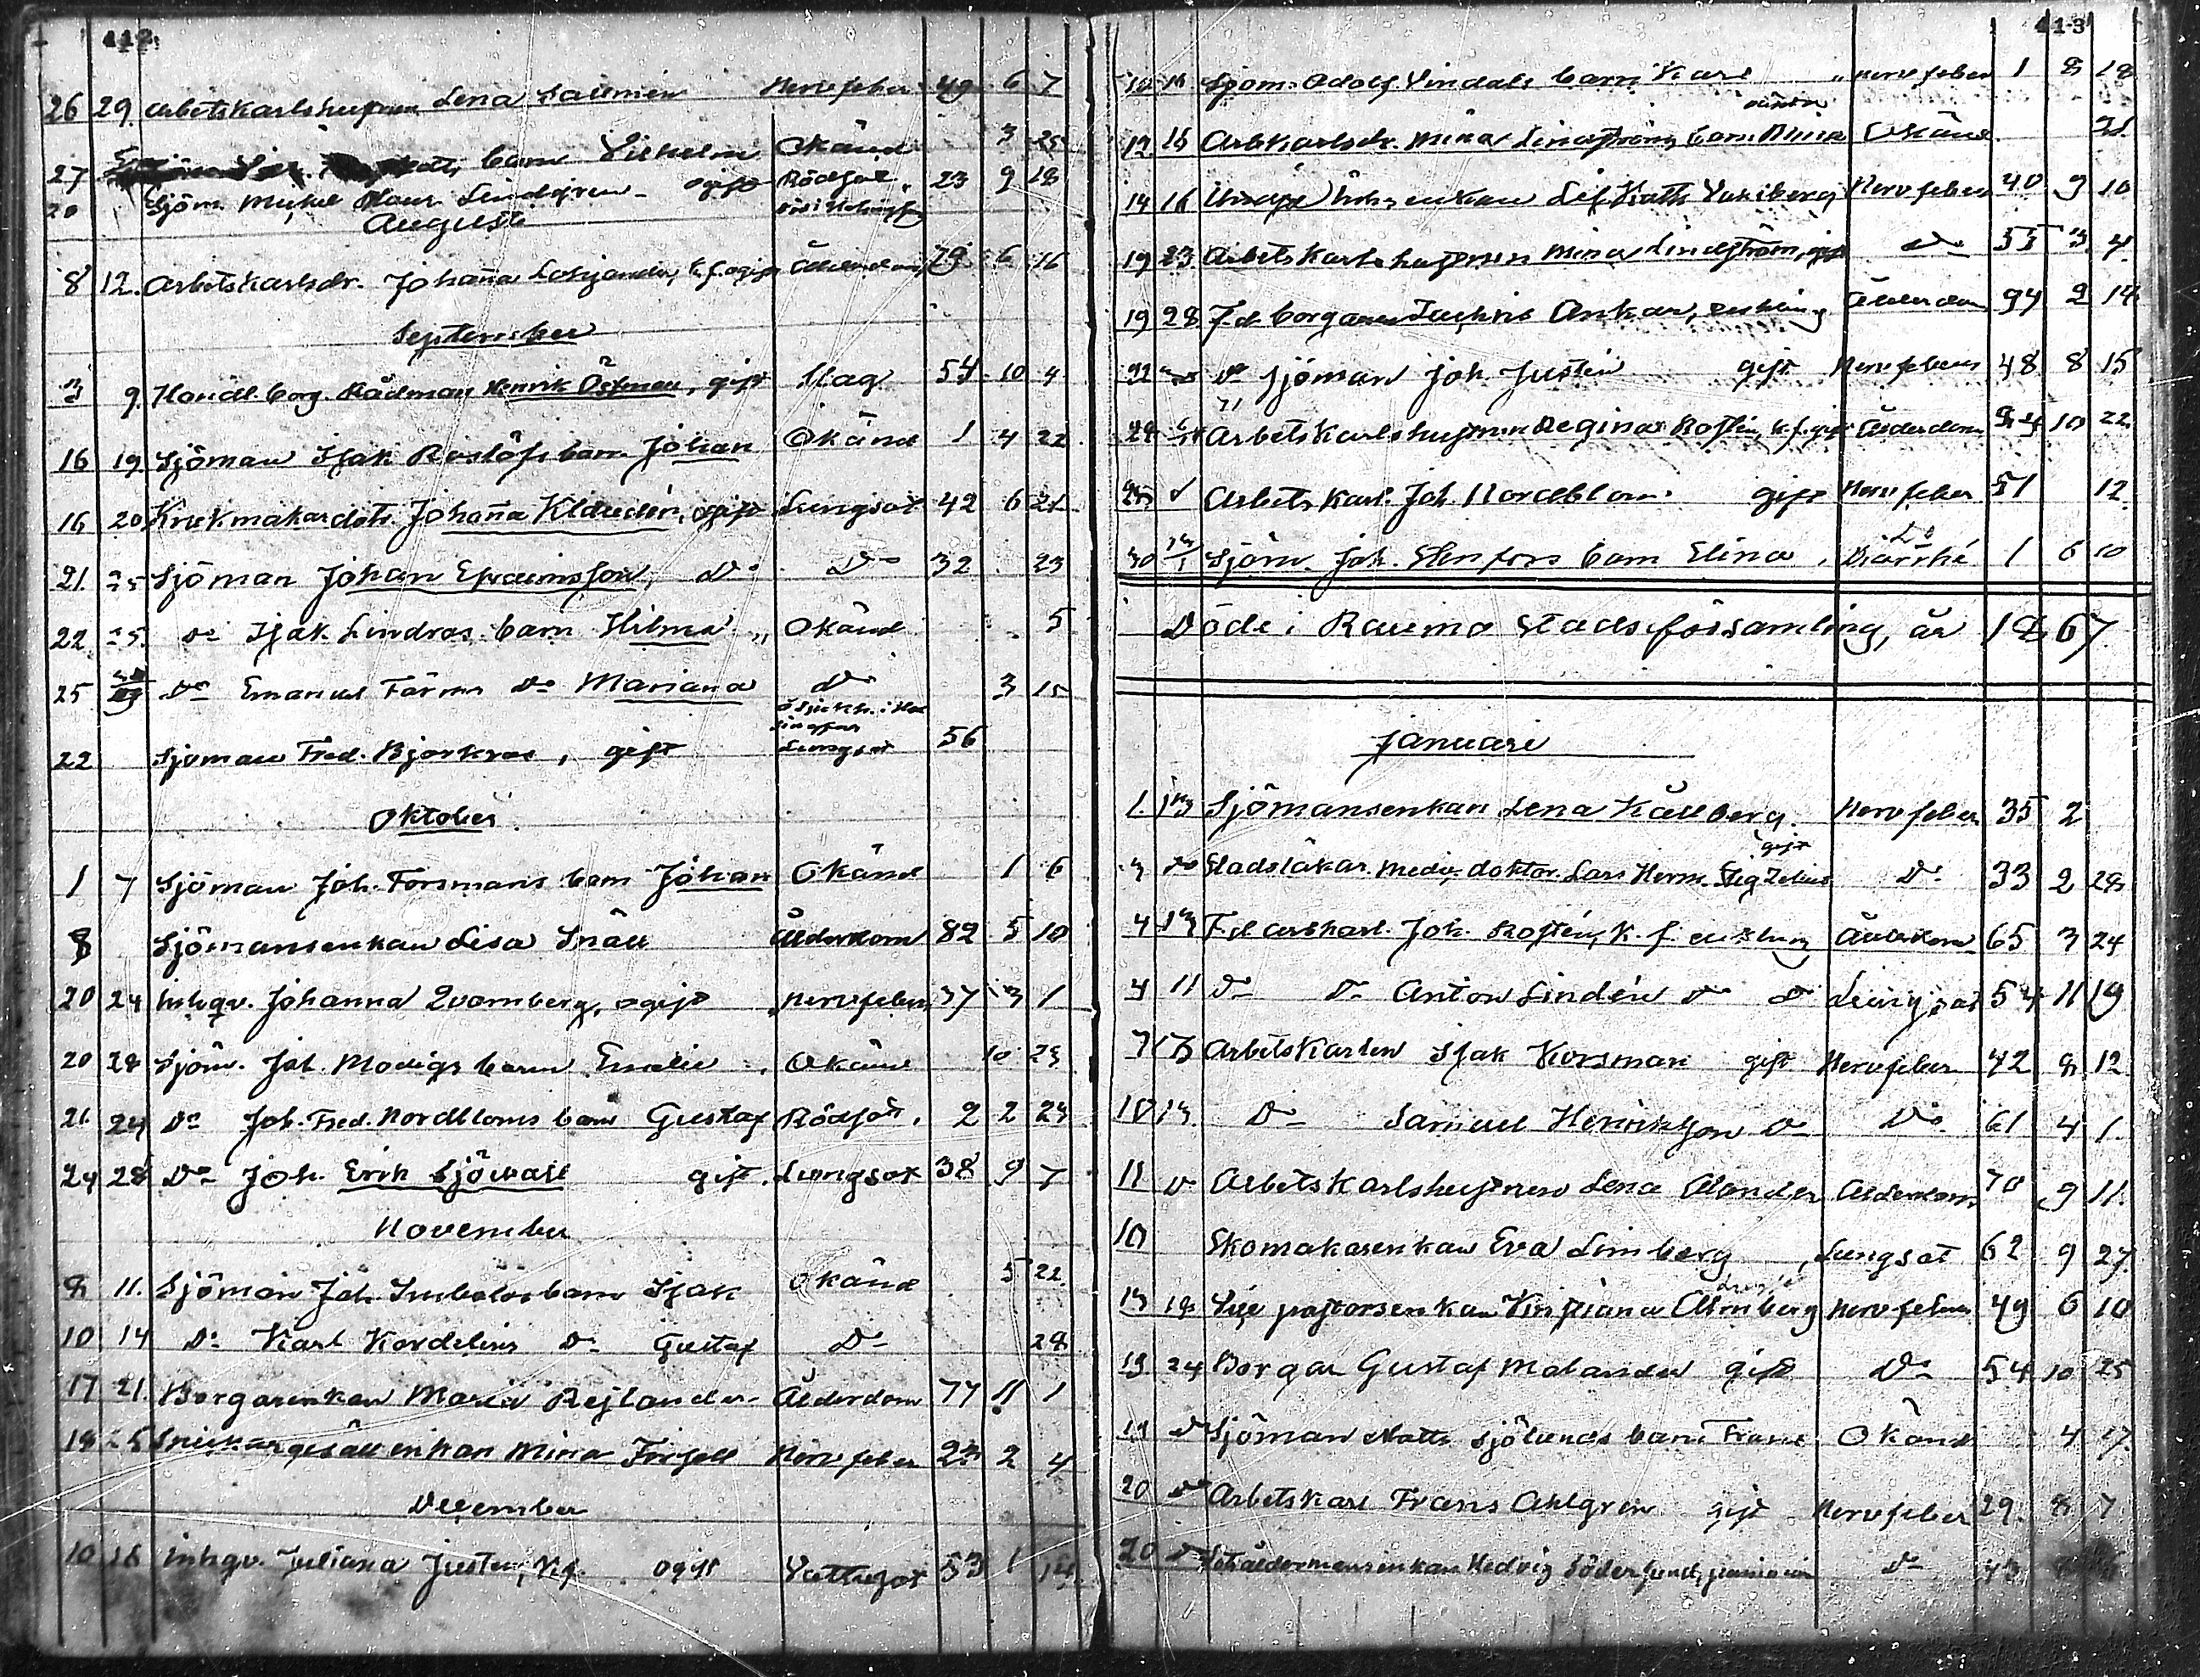 412
26 29 Arbetskarlshustrun Lena Salmén Nervfeber 49 6 7
27 barn Vilhelm Okänd 3 25
20 Sjöm. Mickel Lindgren ogift Rödsot 23 9 18
Augusti
8 12. Arbetskarlsdr. Johanna k.f. ogift Ålderdom 79 6 16
September
3 9. Handl. borg. Rådman Henrik Österman, gift Slag 54 10 4
16 19 Sjöman Isak Roslöfs barn Johan Okänd 1 4 22
16 20 Johanna ogift Lungsot 42 6 21
21. 25 Sjöman Johan Efraimsson, Do Do 32 23
22 25. Do Isak Lindros barn Hilma Okänd 5
25 Do Emanuel Färms Do Mariana Do 3 15
22 Sjöman Fred. Björkroos, gift Lungsot 56
Oktober
1 7 Sjöman Joh. Forsmans barn Johan Okänd 1 6
8 Sjömansenkan Lisa Snäll Ålderdom 82 5 10
20 24 Inhqv. Johanna Qvarnberg, ogift Nervfeber 37 3 1
20 28 Sjöm. Joh. Modigs barn Emelie Okänd 10 23
21. 24 Do Joh. Fred. Nordbloms barn Gustaf Rödsot. 2 2 23
24 28 Do Joh. Erik Sjövall gift. Lungsot 38 9 7
November
8 11. Sjöman Joh. barn Isak Okänd 5 22.
10 14 Do Karl Kordelins Do Gustaf Do 28
17 21. Borgarenkan Maria Rejlander Ålderdom 77 11 1
18 25 Snickargesällenkan Mina Frisell Nervfeber 2 4
December
10 16 Inhqv. Juliana Justén, Kf. ogift Vattusot 53 1 14
413
10 16 Sjöm. Adolf Lindals barn Karl Nervfeber 1 8 18
12. 15 Arbkarlsdr. Mina Lindströms barn Mina Okänd 21
14 16 enkan Kath. Nervfeber 40 9 10
19 23. Arbetskarlshustrun Mina Lindström, gift Do 55 3 4
19 28 F.d. borgaren Ankar, enkling Ålderdom 94 2 14
22 Do Sjöman Joh. Justén gift Nervfeber 48 8 15
28 Arbetskarlshustrun Regina Rostén, k.f. gift Ålderdom 10 22
Arbetskarl. Joh. Nordblom gift Nervfeber 51 12
30 Sjöm. Joh. Stenfors barn Elina, Diarrhé 1 6 10
Döde i Raumo Stadsförsamling, år 1867
Januari
1. 13 Sjömansenkan Lena Källberg. Nervfeber 35 2
gift
3 Do Stadsläkar. Medic. doktor. Lars Herm. Do 33 2 28
4 13 F.d. arbkarl. Joh. Rostén, k.f. enkling Ålderdom 65 3 24
4 11 Do Do Anton Lindén Do Do Lungsot 54 11 19
7 13 Arbetskarlen Isak Korsman gift Nervfeber 42 8 12
10 13. Do Samuel Henriksson Do Do 61 4 1.
11 Do Arbetskarlshustrun Lena Alander Ålderdom 70 9 11.
10 Skomakarenkan Eva Limberg, Lungsot 62 9 27.
13 18 Vice pastorsenkan Almberg Nervfeber 49 6 10
13 24 Borgar Gustaf Malander gift Do 54 10 25
19 Do Sjöman Matts Sjölunds barn Frans Okänd 4 17.
20 Do Arbetskarl Frans Ahlgren gift Nervfeber 29. 8 7
20 Do Hedvig Söderlund, Do